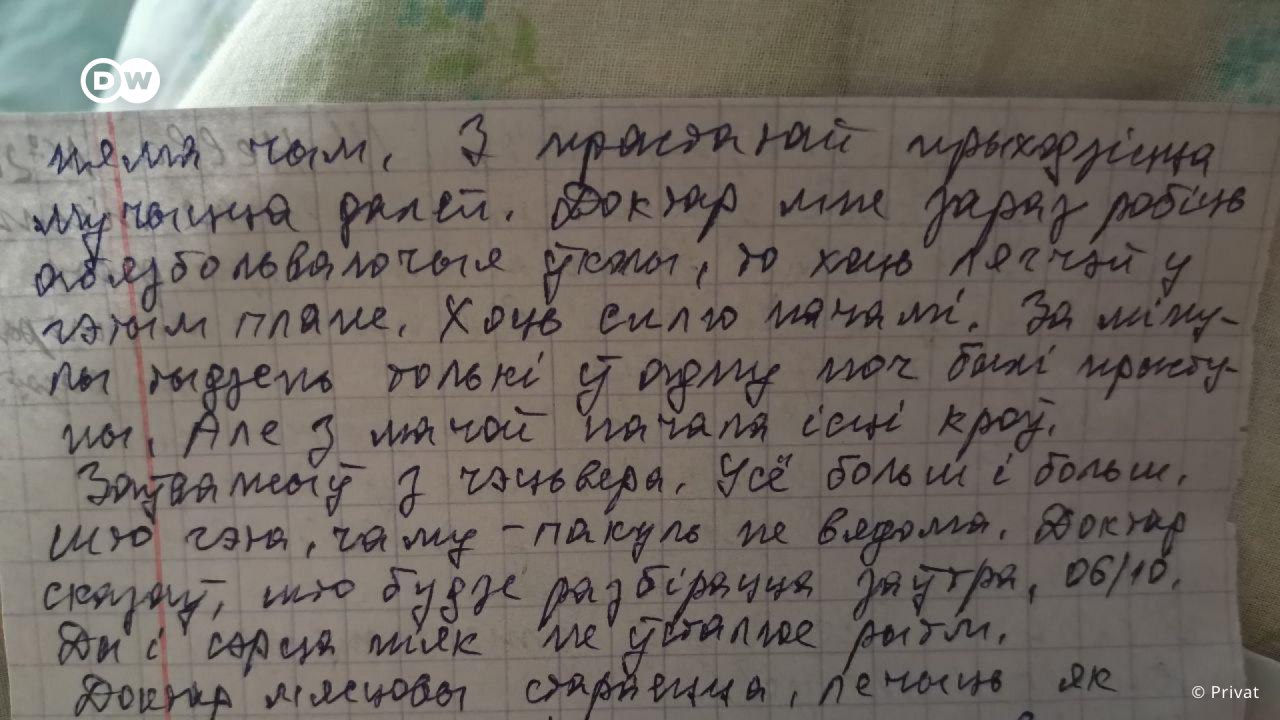 DW
няма чым. З прастатай прыходзіцца
мучыцца далей. Доктар мне зараз робіць
абязбольвалочыя ўколы, то хоць лягчэй у
гэтым плане. Хоць сплю начамі. За міну-
лы тыдзень толькі ў адну ноч былі прысту-
пы. Але з мачой пачала ісці кроў.
Заўважыў з чэцьвера. Усё больш і больш.
Што гэта, чаму - пакуль не вядома. Доктар
сказаў, што будзе разбірацца заўтра, 06/10.
Ды і сэрца ніяк не ўсталюе рытм.
Доктар мясцовы стараецца, лечыць як
© Privat